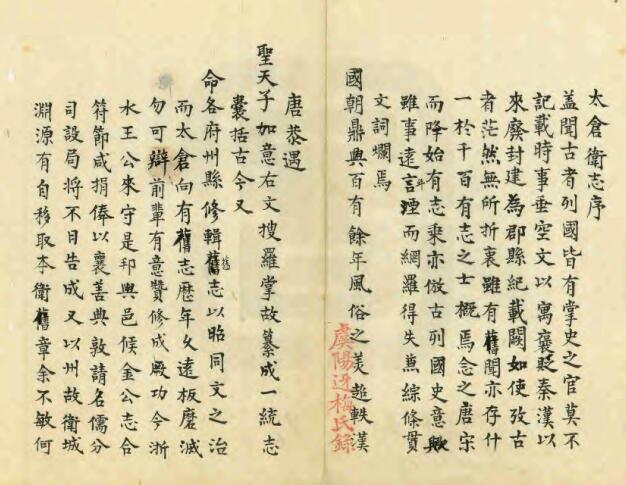 太倉衛志序
蓋聞古者列國皆有掌史之官莫不
記載時事垂空文以寓褒貶秦漢以
來廢封建為郡縣紀載闕如使攷古
者茫然無所折衷雖有舊聞亦存什
一於千百有志之士概焉念之唐宋
而降始有志乘亦倣古列國史意歟
雖事遠言湮而網羅得失兼綜條貫
文詞爛焉
國朝鼎興百有餘年風俗之美超軼漢
虞陽迓梅氏錄
唐恭遇
聖天子加意右文搜羅掌故纂成一統志
囊括古今又
命各府州縣修輯舊志以昭同文之治
而太倉向有舊志歷年久遠板磨滅
勿可辯前輩有意贊修成厥功今浙
水王公來守是邦興邑候金公志合
符節咸捐俸以襄善典敦請名儒分
司設局將不日告成又以州故衛城
淵源有自移取本衛舊章余不敏何